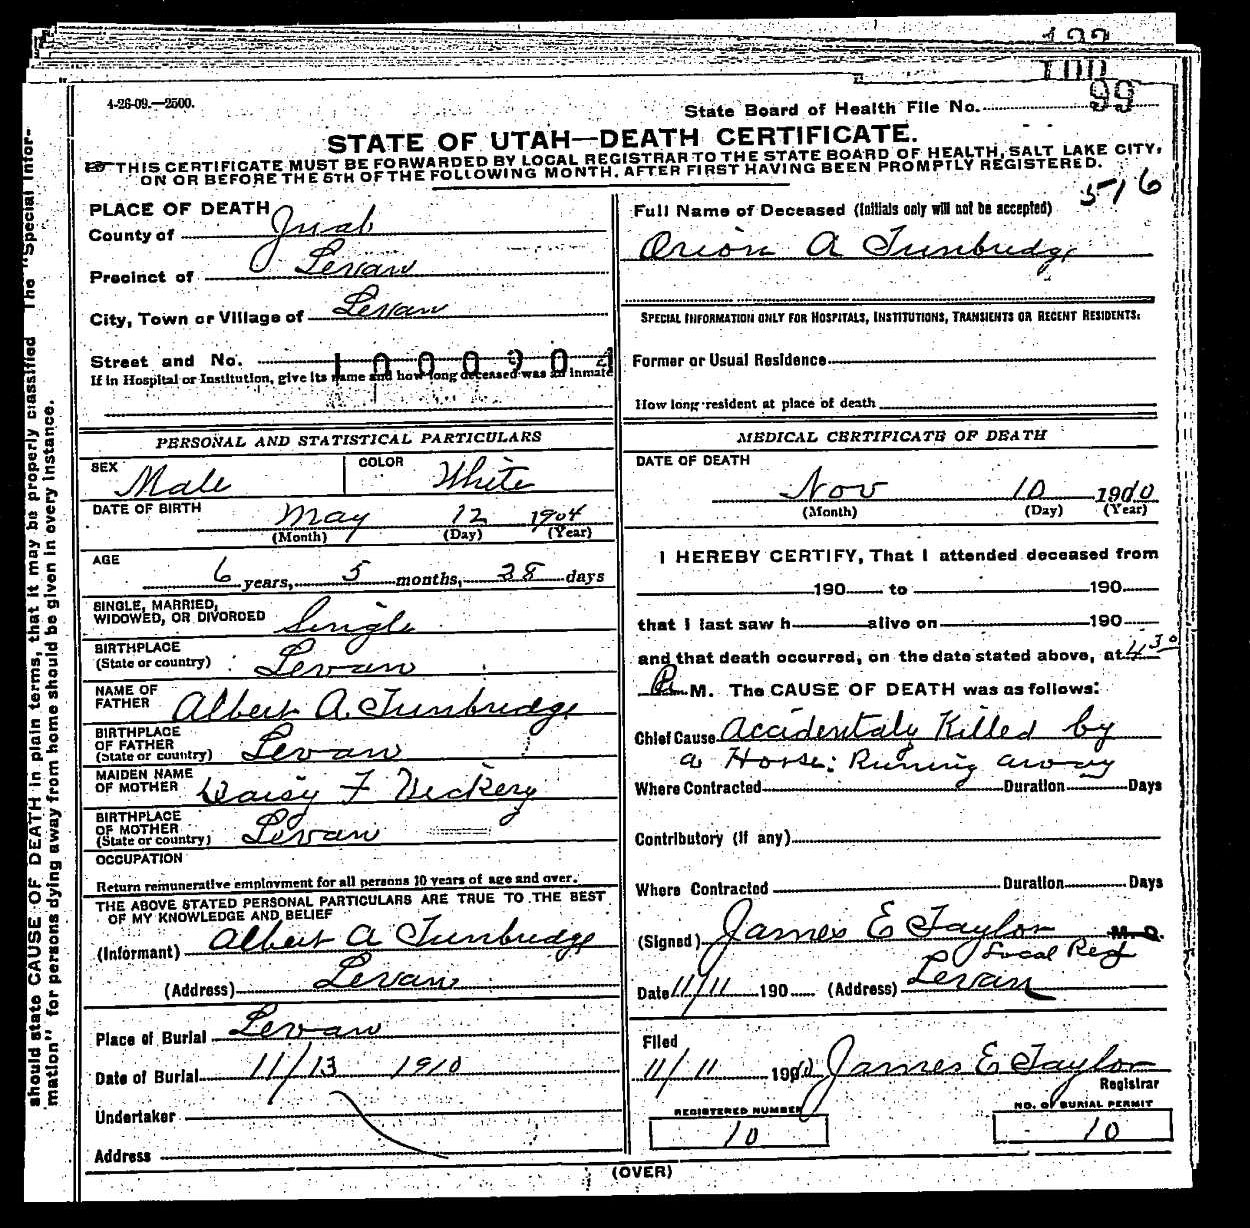 122
100
99
4-26-09.—2500.
State Board of Health File No.
STATE OF UTAH—DEATH CERTIFICATE.
THIS CERTIFICATE MUST BE FORWARDED BY LOCAL REGISTRAR TO THE STATE BOARD OF HEALTH, SALT LAKE CITY,
ON OR BEFORE THE 5TH OF THE FOLLOWING MONTH, AFTER FIRST HAVING BEEN PROMPTLY REGISTERED.
516
should state CAUSE OF DEATH in plain terms, that it may be properly classified The "Special Infor-
mation" for persons dying away from home should be given in every instance.
PLACE OF DEATH
County of Juab
Precinct of Levan
City, Town or Village of Levan
Street and No.
If in Hospital or Institution, give its name and how long deceased was an inmate
PERSONAL AND STATISTICAL PARTICULARS
SEX Male COLOR White
DATE OF BIRTH May 12 1904
(Month) (Day) (Year)
AGE
6 years, 5 months, 28 days
SINGLE, MARRIED,
WIDOWED, OR DIVORCED Single
BIRTHPLACE
(State or country) Levan
NAME OF
FATHER Albert A. Tunbridge
BIRTHPLACE
OF FATHER
(State or country) Levan
MAIDEN NAME
OF MOTHER Daisy F Vickery
BIRTHPLACE
OF MOTHER
(State or country) Levan
OCCUPATION
Return remunerative employment for all persons 10 years of age and over.
THE ABOVE STATED PERSONAL PARTICULARS ARE TRUE TO THE BEST
OF MY KNOWLEDGE AND BELIEF
(Informant) Albert A Tunbridge
(Address) Levan
Place of Burial Levan
Date of Burial 11/13 1910
Undertaker
Address
Full Name of Deceased (Initials only will not be accepted)
Orion A Tunbridge
SPECIAL INFORMATION ONLY FOR HOSPITALS, INSTITUTIONS, TRANSIENTS OR RECENT RESIDENTS:
Former or Usual Residence
How long resident at place of death
MEDICAL CERTIFICATE OF DEATH
DATE OF DEATH
Nov 10 1910
(Month) (Day) (Year)
I HEREBY CERTIFY, That I attended deceased from
190 to 190
that I last saw h alive on 190
and that death occurred, on the date stated above, at 4 30
P. M. The CAUSE OF DEATH was as follows:
Chief Cause Accidentaly Killed by
a Horse: Runing away
Where Contracted Duration Days
Contributory (if any)
Where Contracted Duration Days
(Signed) James E Taylor M. D.
Local Reg
Date 11/11 190 (Address) Levan
Filed
11/11 1910 James E Taylor
Registrar
REGISTERED NUMBER
10
NO. OF BURIAL PERMIT
10
(OVER)